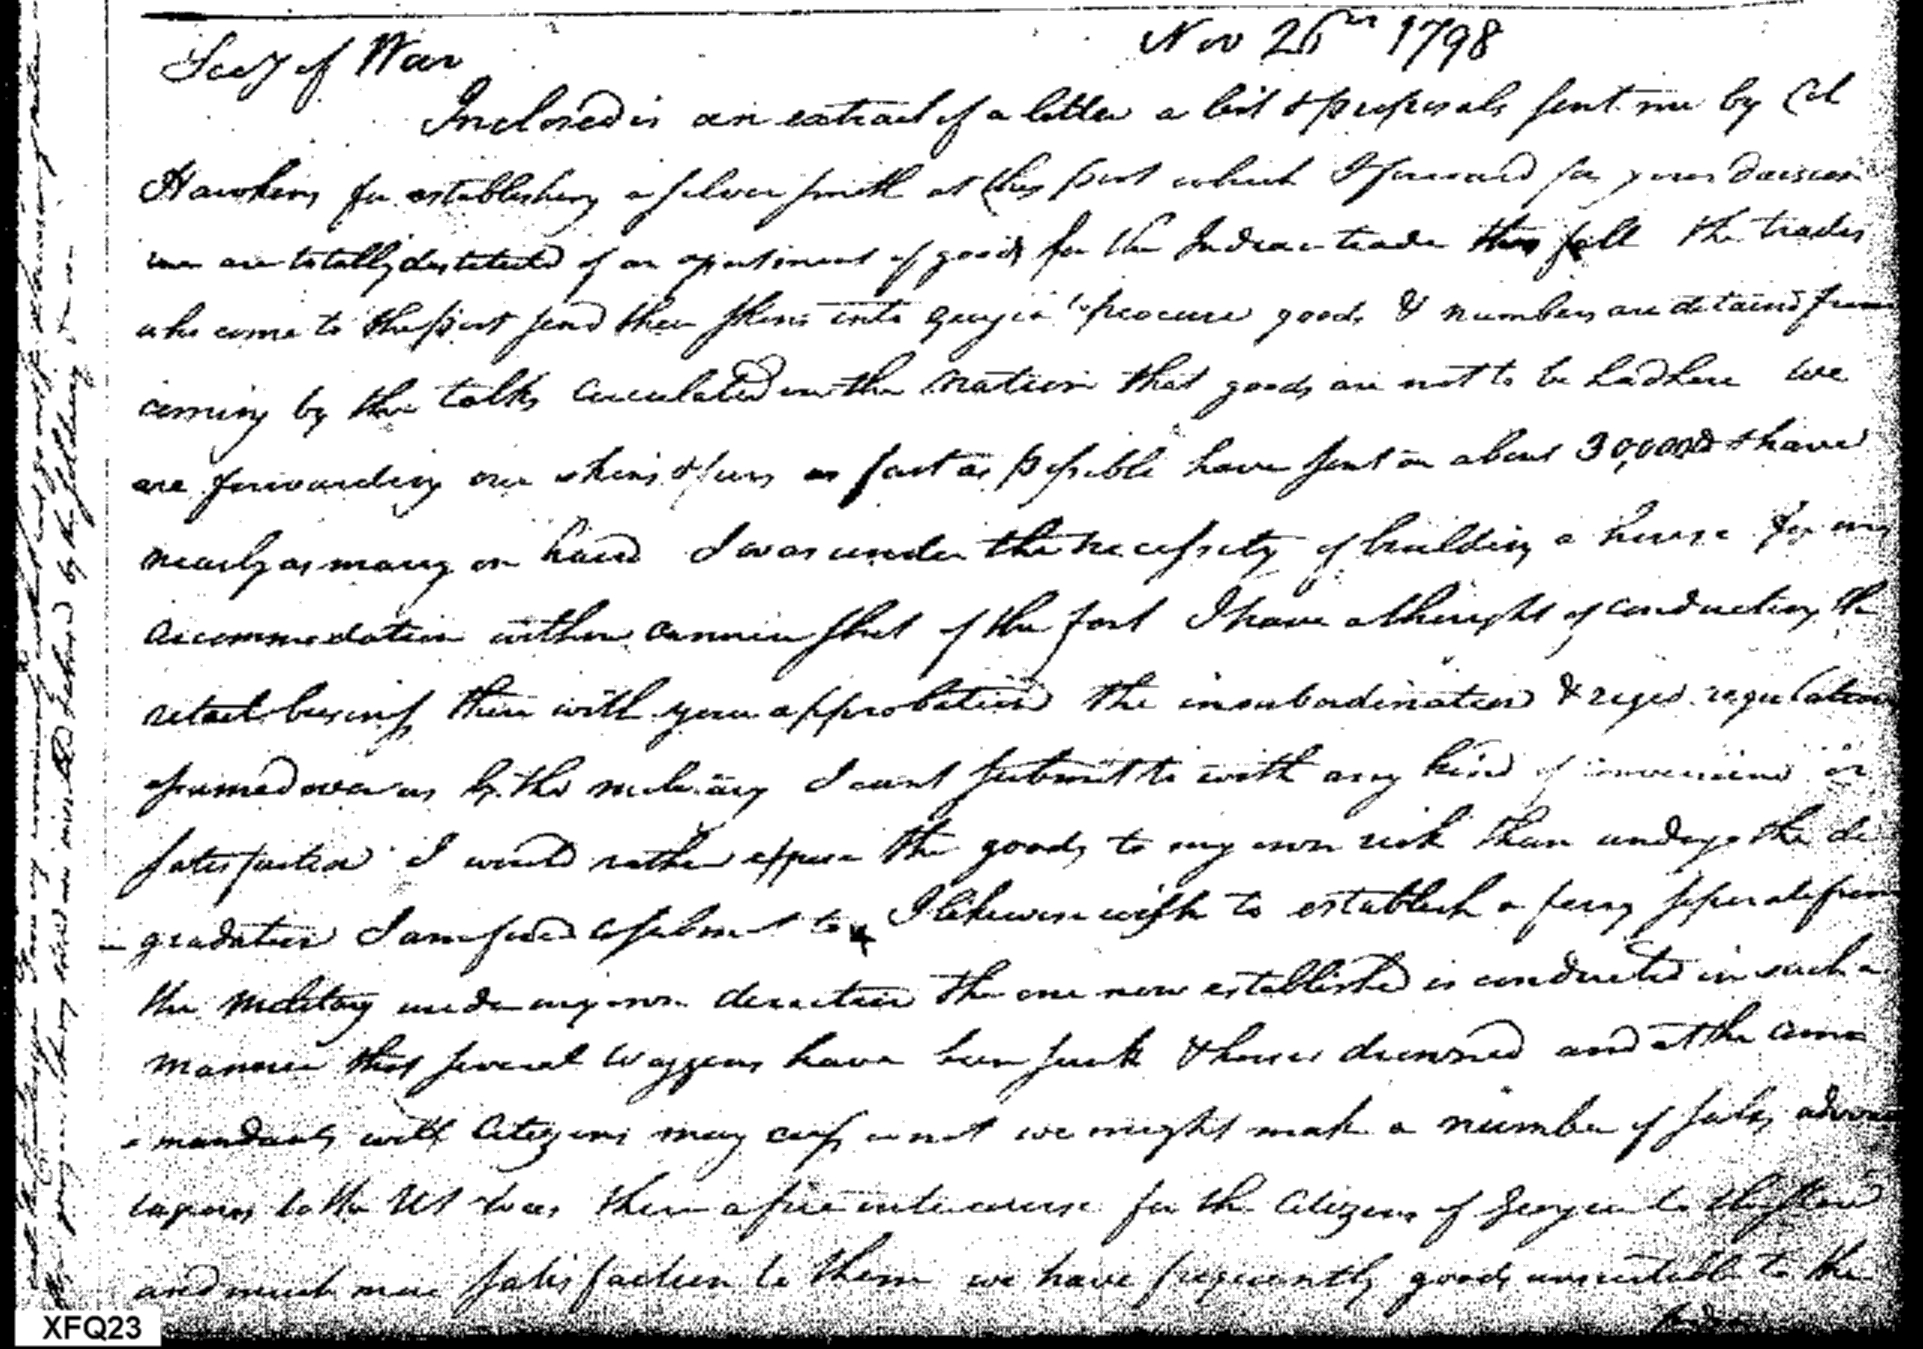 Nov 26th 1798
Secy of War
Inclosed is an extract of a letter a bill & proposals sent me by Col
Hawkins for establishing a silver smith at this post which I forward for your decision
we are totally destitute of an assortment of goods for the Indian trade this fall the trades
who come to the post send their skins into georgia to procure goods & numbers are detained from
coming by the talks circulated in the nation that goods are not to be had here we
are forwarding our skins & furs as fast as possible have sent on about 30,000 & have
nearly as many on hand I was under the necessity of building a house for my
accommodation within cannon shot of the fort I have a thought of conducting the
retail business there with your approbation the insubordination & rigid regulations
assumed over us by the military I cant submit to with any kind of convenience or
satisfaction I would rather expose the goods to my own risk than undergo the de
gradation I am to I likewise wish to establish a ferry seperate from
the military under my own direction the one now established is conducted in such a
manner that several waggons have been sunk & horses drowned and at the com
mandants will Citizens may cross or not we might make a number of sales advan
tageous to the US was there a free intercourse for the Citizens of Georgia to the store
and much more satisfaction to them we have frequently goods unsuitable to the
Indian
XFQ23